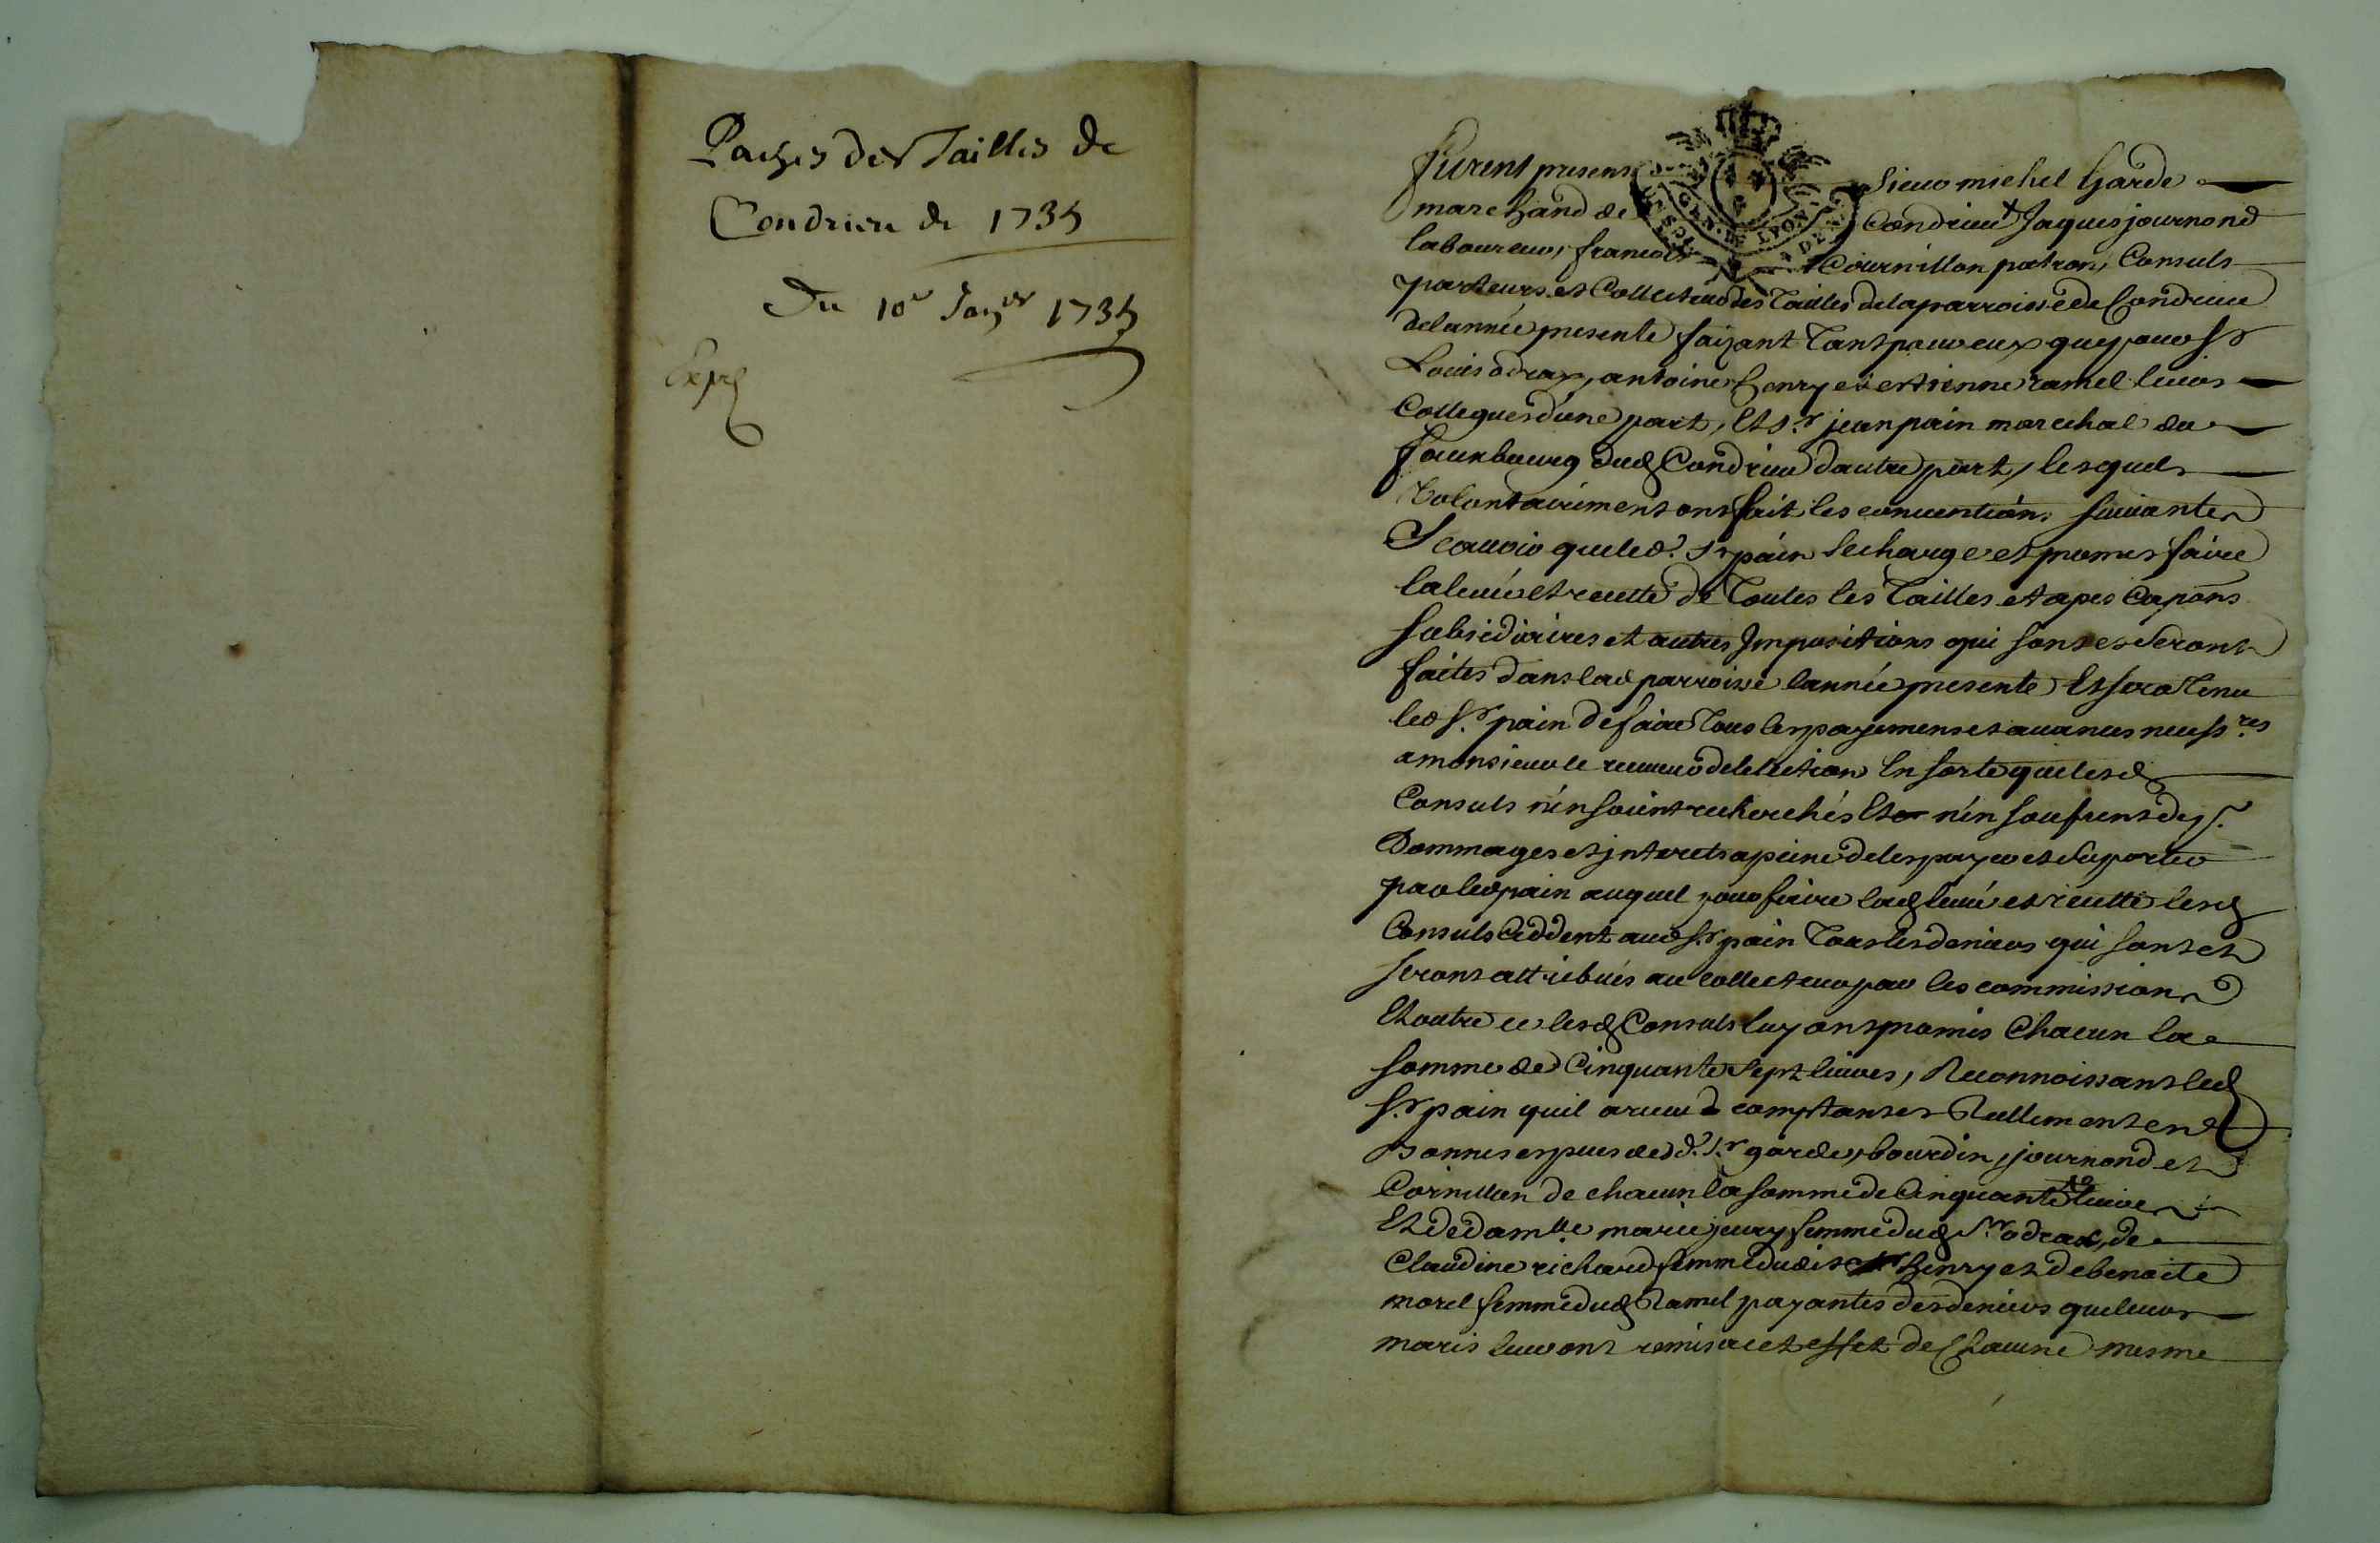 Paches des Tailles de
Condrieu de 1735
Du 10e Janer 1735
Expé
furent presens Sieur michel Garde
marchand de Condrieu + Jaques journond
laboureur, francois Cournillon patron, Consuls
GEN. DE LYON
parteurs et Collecteurs des Tailles de la parroisse de Condrieu
de lannée presente faizant Tant pour eux que pour Sr
Louis odrax, antoine henry et estienne ramel leurs
Collegues d'une part, Et Sr jean pain marechal du
Fauxbourg dud Condrieu dautre part, lesquels
Volontairement ont fait les conventions suivantes
Scauoir que led. Sr pain se charge et promet faire
la leuée et recette de Toutes les Tailles etapes Capons
subsidiaires et autres Impositions qui sont et seront
faites dans lad parroisse lannée presente Et sera Tenu
led Sr pain de faire Tous les payemens et auances necessres
a monsieur le receueur de lelection En sorte que lesd
Consuls n'en soint recherchés Et n'en soufrent de
Dommages et jnterets a peine de les payer et suporter
par led pain auquel pour faire lad leuée et recette lesd
Consuls Ceddent aud Sr pain Tous les deniers qui sont et
seront attribués au collecteur par les commissions
Et outre ce lesd Consuls luy ont promis Chacun la
somme de Cinquante sept liures, Reconnoissant led
Sr pain quil a receu comptant et Reellement en
Bonnes espces desd. Sr garde, bourdin, journond et
Cornillon de chacun la somme de Cinquante liures
Et de damlle marie jury femme dud Sr odrax, de
Claudine richard femme dudit henry et de benoite
morel femme dud Ramel payantes des deniers que leurs
maris leur ont remis a cet effet de Chacune mesme